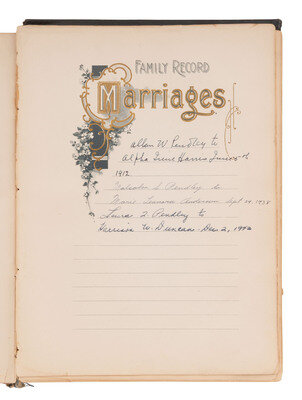 FAMILY RECORD
Marriages
Allen W Pendley to
Alpha Irene Harris June 5th
1912
Malcolm L Pendley to
Marie Leonora Anderson Sept 14, 1938
Laura I. Pendley to
W. Duncan Dec 2, 1942